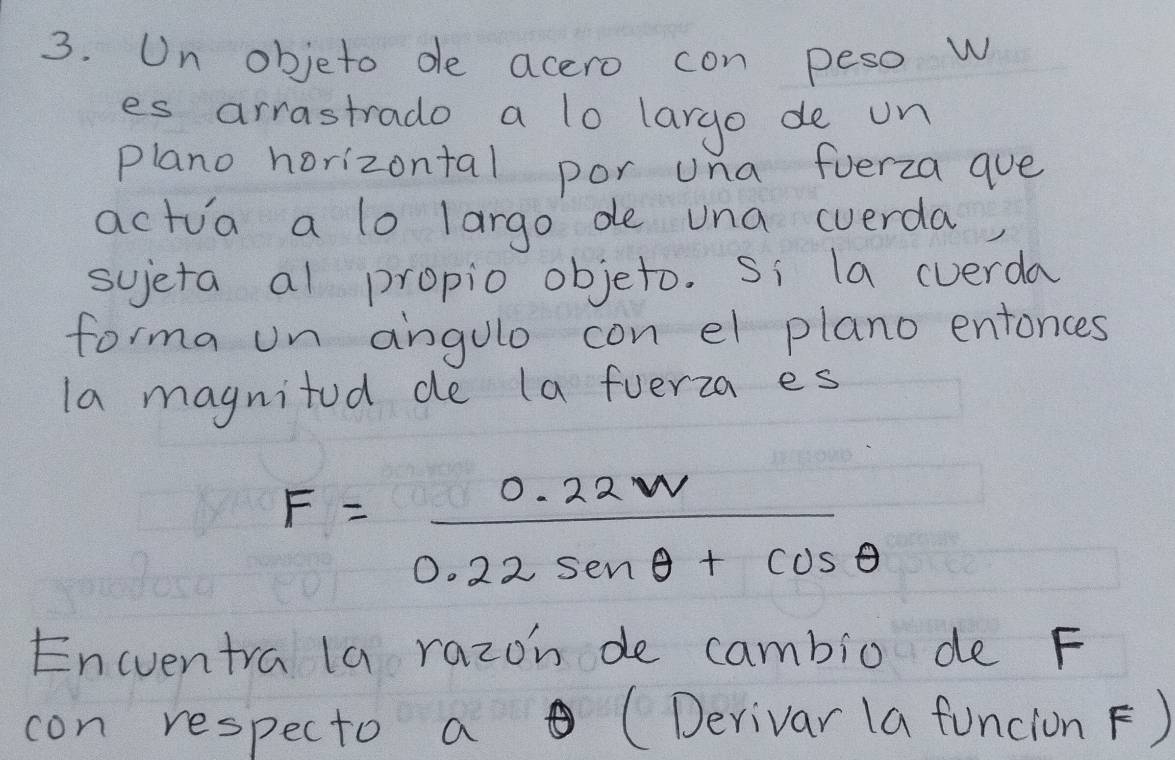 3. Un objeto de acero con peso W
es arrastrado a lo largo de un
plano horizontal por una fuerza que
actúa a lo largo de una cuerda,
sujeta al propio objeto. Si la cuerda
forma un ángulo con el plano entonces
la magnitud de la fuerza es
F = 0.22 W
0.22 sen θ + cos θ
Encuentra la razón de cambio de F
con respecto a θ (Derivar la funcion F)